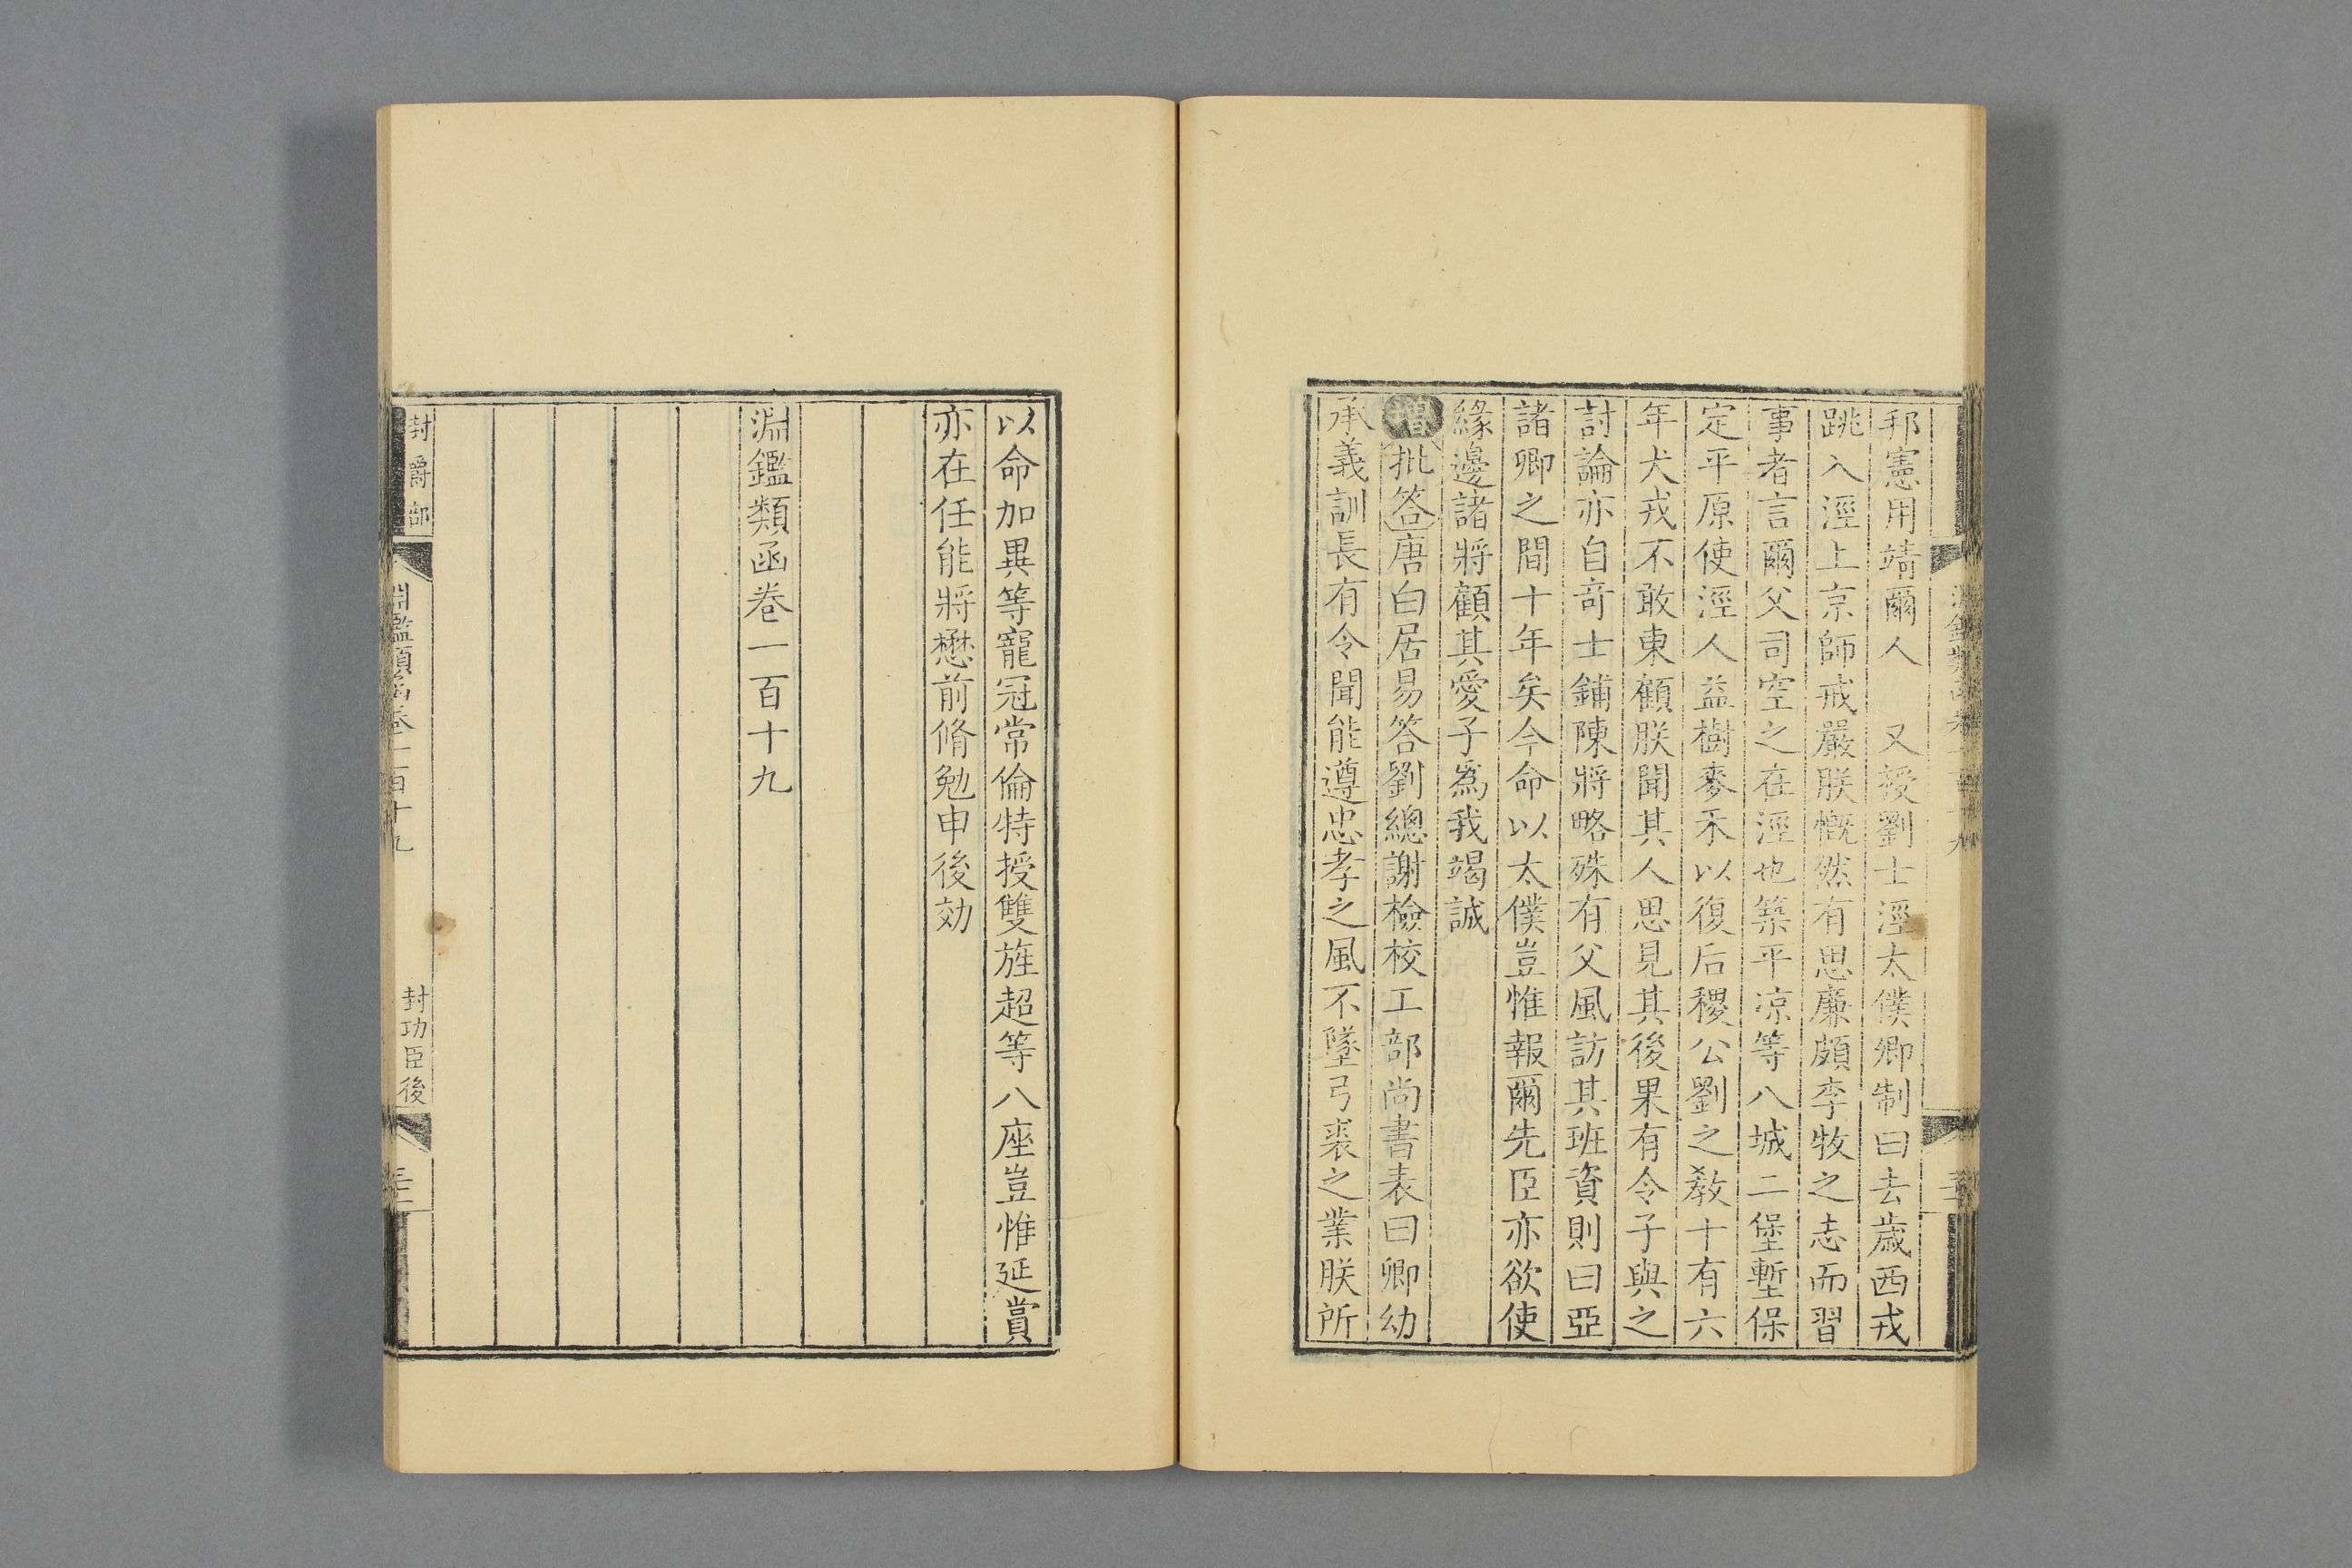 邦憲用靖爾人　又授劉士涇太僕卿制曰去歲西戎
跳入涇上京師戒嚴朕慨然有思廉頗李牧之志而習
事者言爾父司空之在涇也築平凉等八城二堡塹保
定平原使涇人益樹麥禾以復后稷公劉之敎十有六
年犬戎不敢東顧朕聞其人思見其後果有令子與之
討論亦自竒士鋪陳將略殊有父風訪其班資則曰亞
諸卿之間十年矣今命以太僕豈惟報爾先臣亦欲使
緣邊諸將顧其愛子爲我竭誠
增批答唐白居易答劉總謝檢校工部尚書表曰卿幼
承義訓長有令聞能遵忠孝之風不墜弓裘之業朕所
以命加異等寵冠常倫特授雙旌超等八座豈惟延賞
亦在任能將懋前脩勉申後効
淵鑑類函卷一百十九
封爵部
淵鑑類函卷一百十九
封功臣後